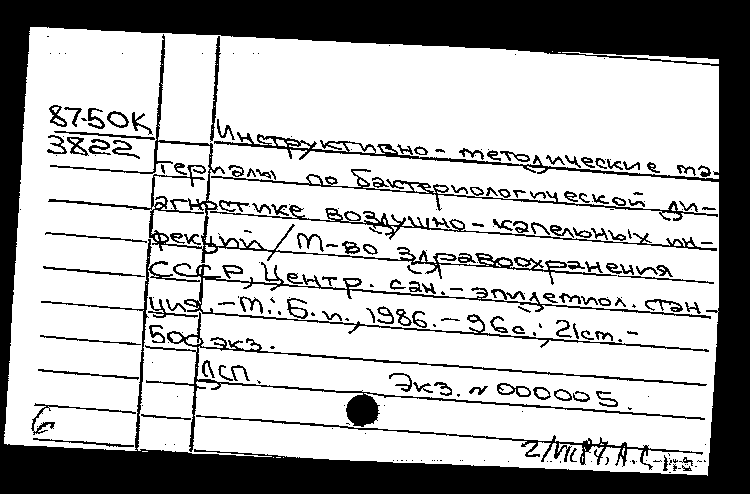 87-50К
3822
Инструктивно-методические ма-
териалы по бактериологической ди-
агностике воздушно-капельных ин-
фекций / М-во здравоохранения
СССР, Центр. сан.-эпидемиол. стан-
ция. - М.: Б. и., 1986. - 96 с.; 21 см. -
500 экз.
ДСП. Экз. N 000005.
6
2/VII 87, А.С.